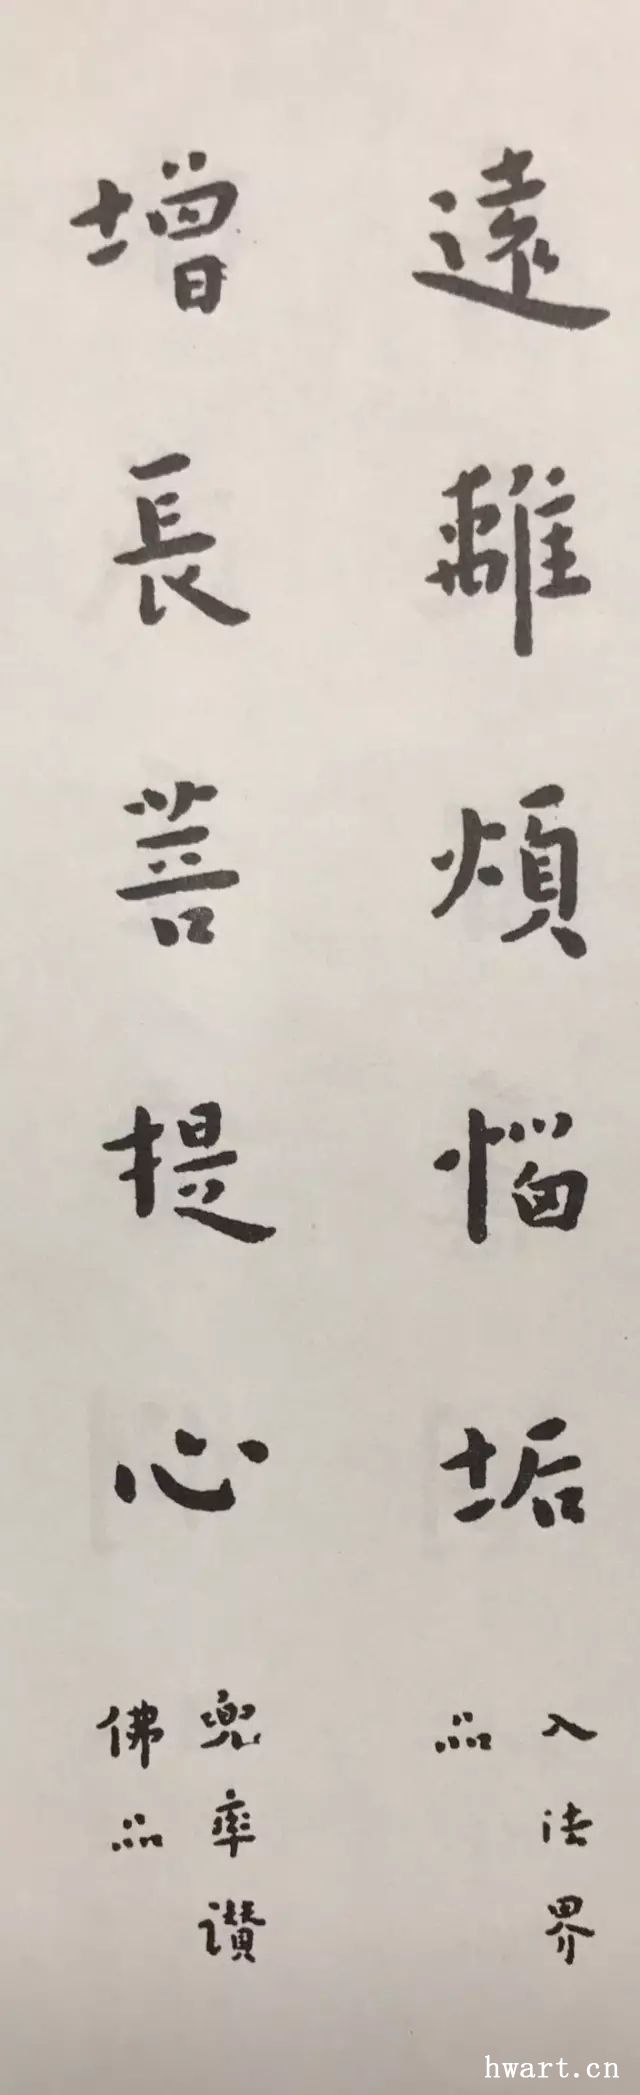 遠離煩惱垢
入法界
品
增長菩提心
兜率讚
佛品
hwart.cn